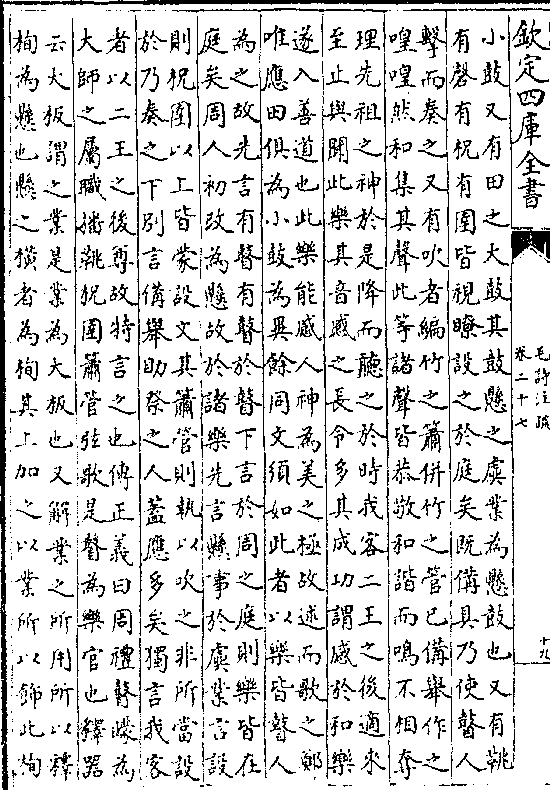 欽定四庫全書
毛詩注疏
卷二十七
十九
小鼓又有田之大鼓其鼓懸之虡業為懸鼓也又有鞉
有磬有柷有圉皆視瞭設之於庭矣既備具乃使瞽人
擊而奏之又有吹者編竹之簫併竹之管已備舉作之
喤喤然和集其聲此等諸聲皆恭敬和諧而鳴不相奪
理先祖之神於是降而聽之於時我客二王之後適來
至止與聞此樂其音感之長令多其成功謂感於和樂
遂入善道也此樂能感人神為美之極故述而歌之鄭
唯應田俱為小鼓為異餘同文須如此者以樂皆瞽人
為之故先言有瞽有瞽於瞽下言於周之庭則樂皆在
庭矣周人初改為懸故於諸樂先言懸事於虡業言設
則柷圉以上皆蒙設文其簫管則執以吹之非所當設
於乃奏之下別言備舉助祭之人蓋應多矣獨言我客
者以二王之後尊故特言之也傳正義曰周禮瞽矇為
大師之屬職播鞉柷圉簫管弦歌是瞽為樂官也釋器
云大板謂之業是業為大板也又解業之所用所以釋
栒為懸也懸之橫者為栒其上加之以業所以飾此栒